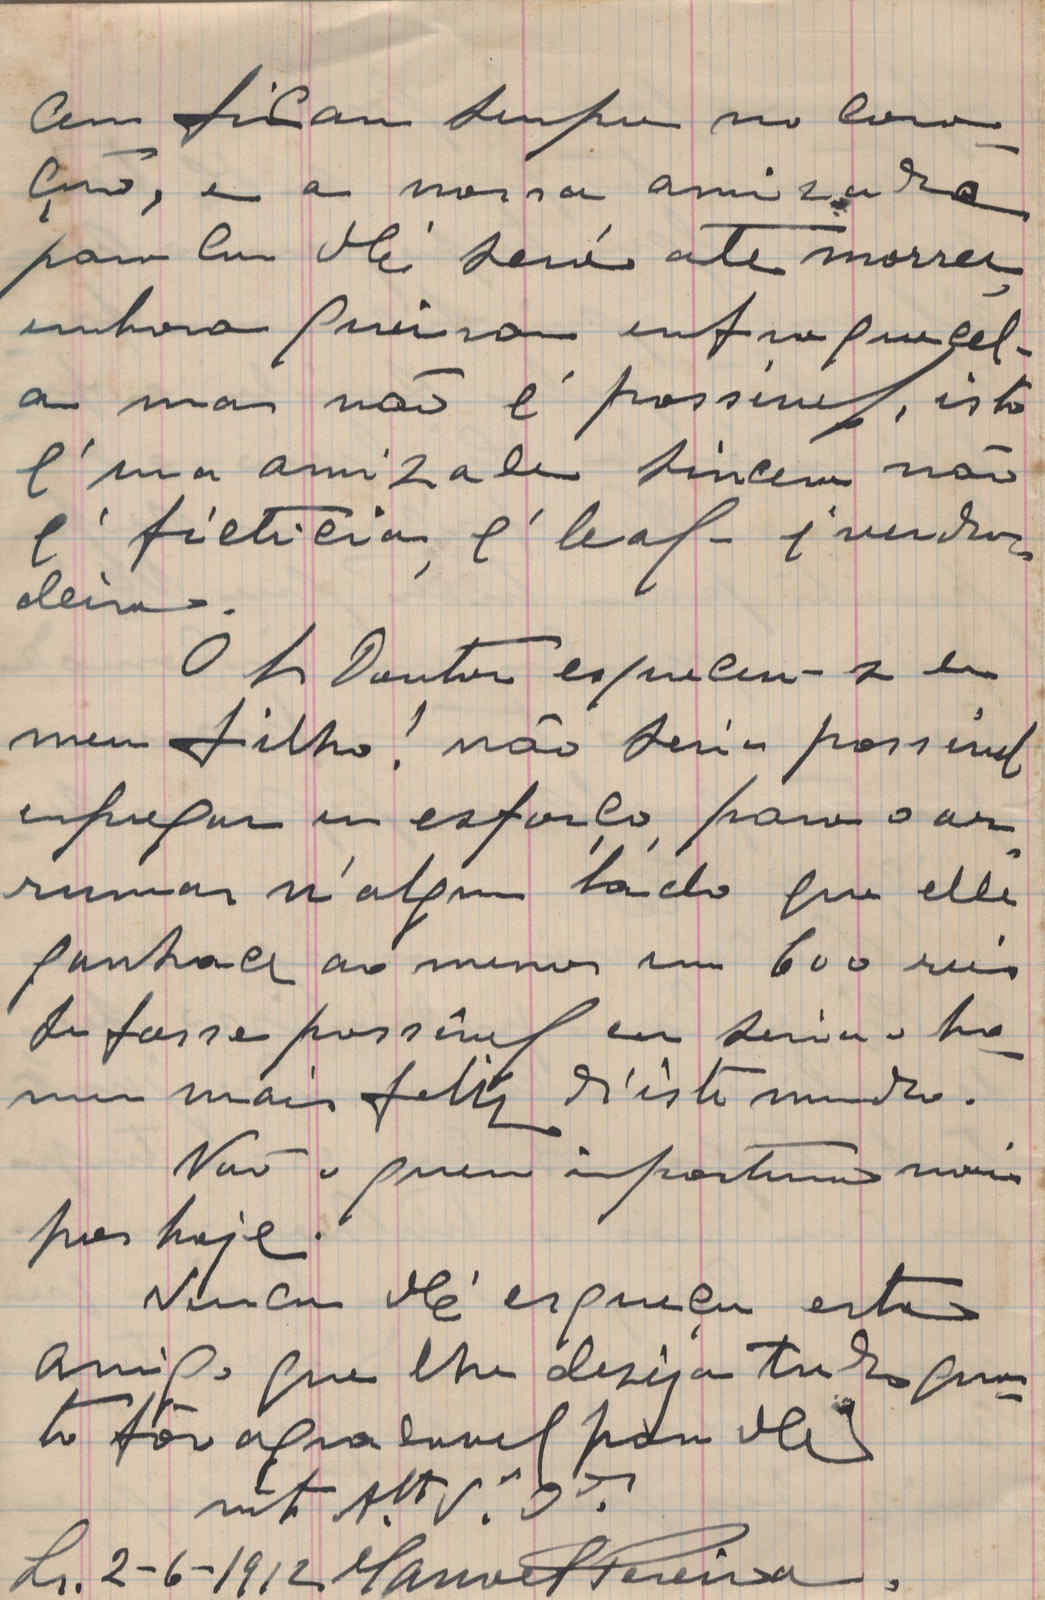 cem ficam sempre no cora-
ção, e a nossa amizade
para com Vcê será até morrer,
embora queiram enfraquecel-
a mas não é possivel, isto
é uma amizade sincera não
é ficticia, é leal e verda-
deira.
O Sr Doutor esqueceu-se de
meu filho! não seria possivel
empregar um esforço para o ar-
rumar n'algum lado que elle
ganhace ao menos um 600 reis
se fosse possivel eu seria o ho-
mem mais feliz d'êste mundo.
Não o quero importunar mais
por hoje.
Nunca Vcê esqueça este
amigo que lhe deseja tudo quan-
to fôr agradavel para Vcê
mt Att.º V.ºr
Lx. 2-6-1912 Manoel Pereira.